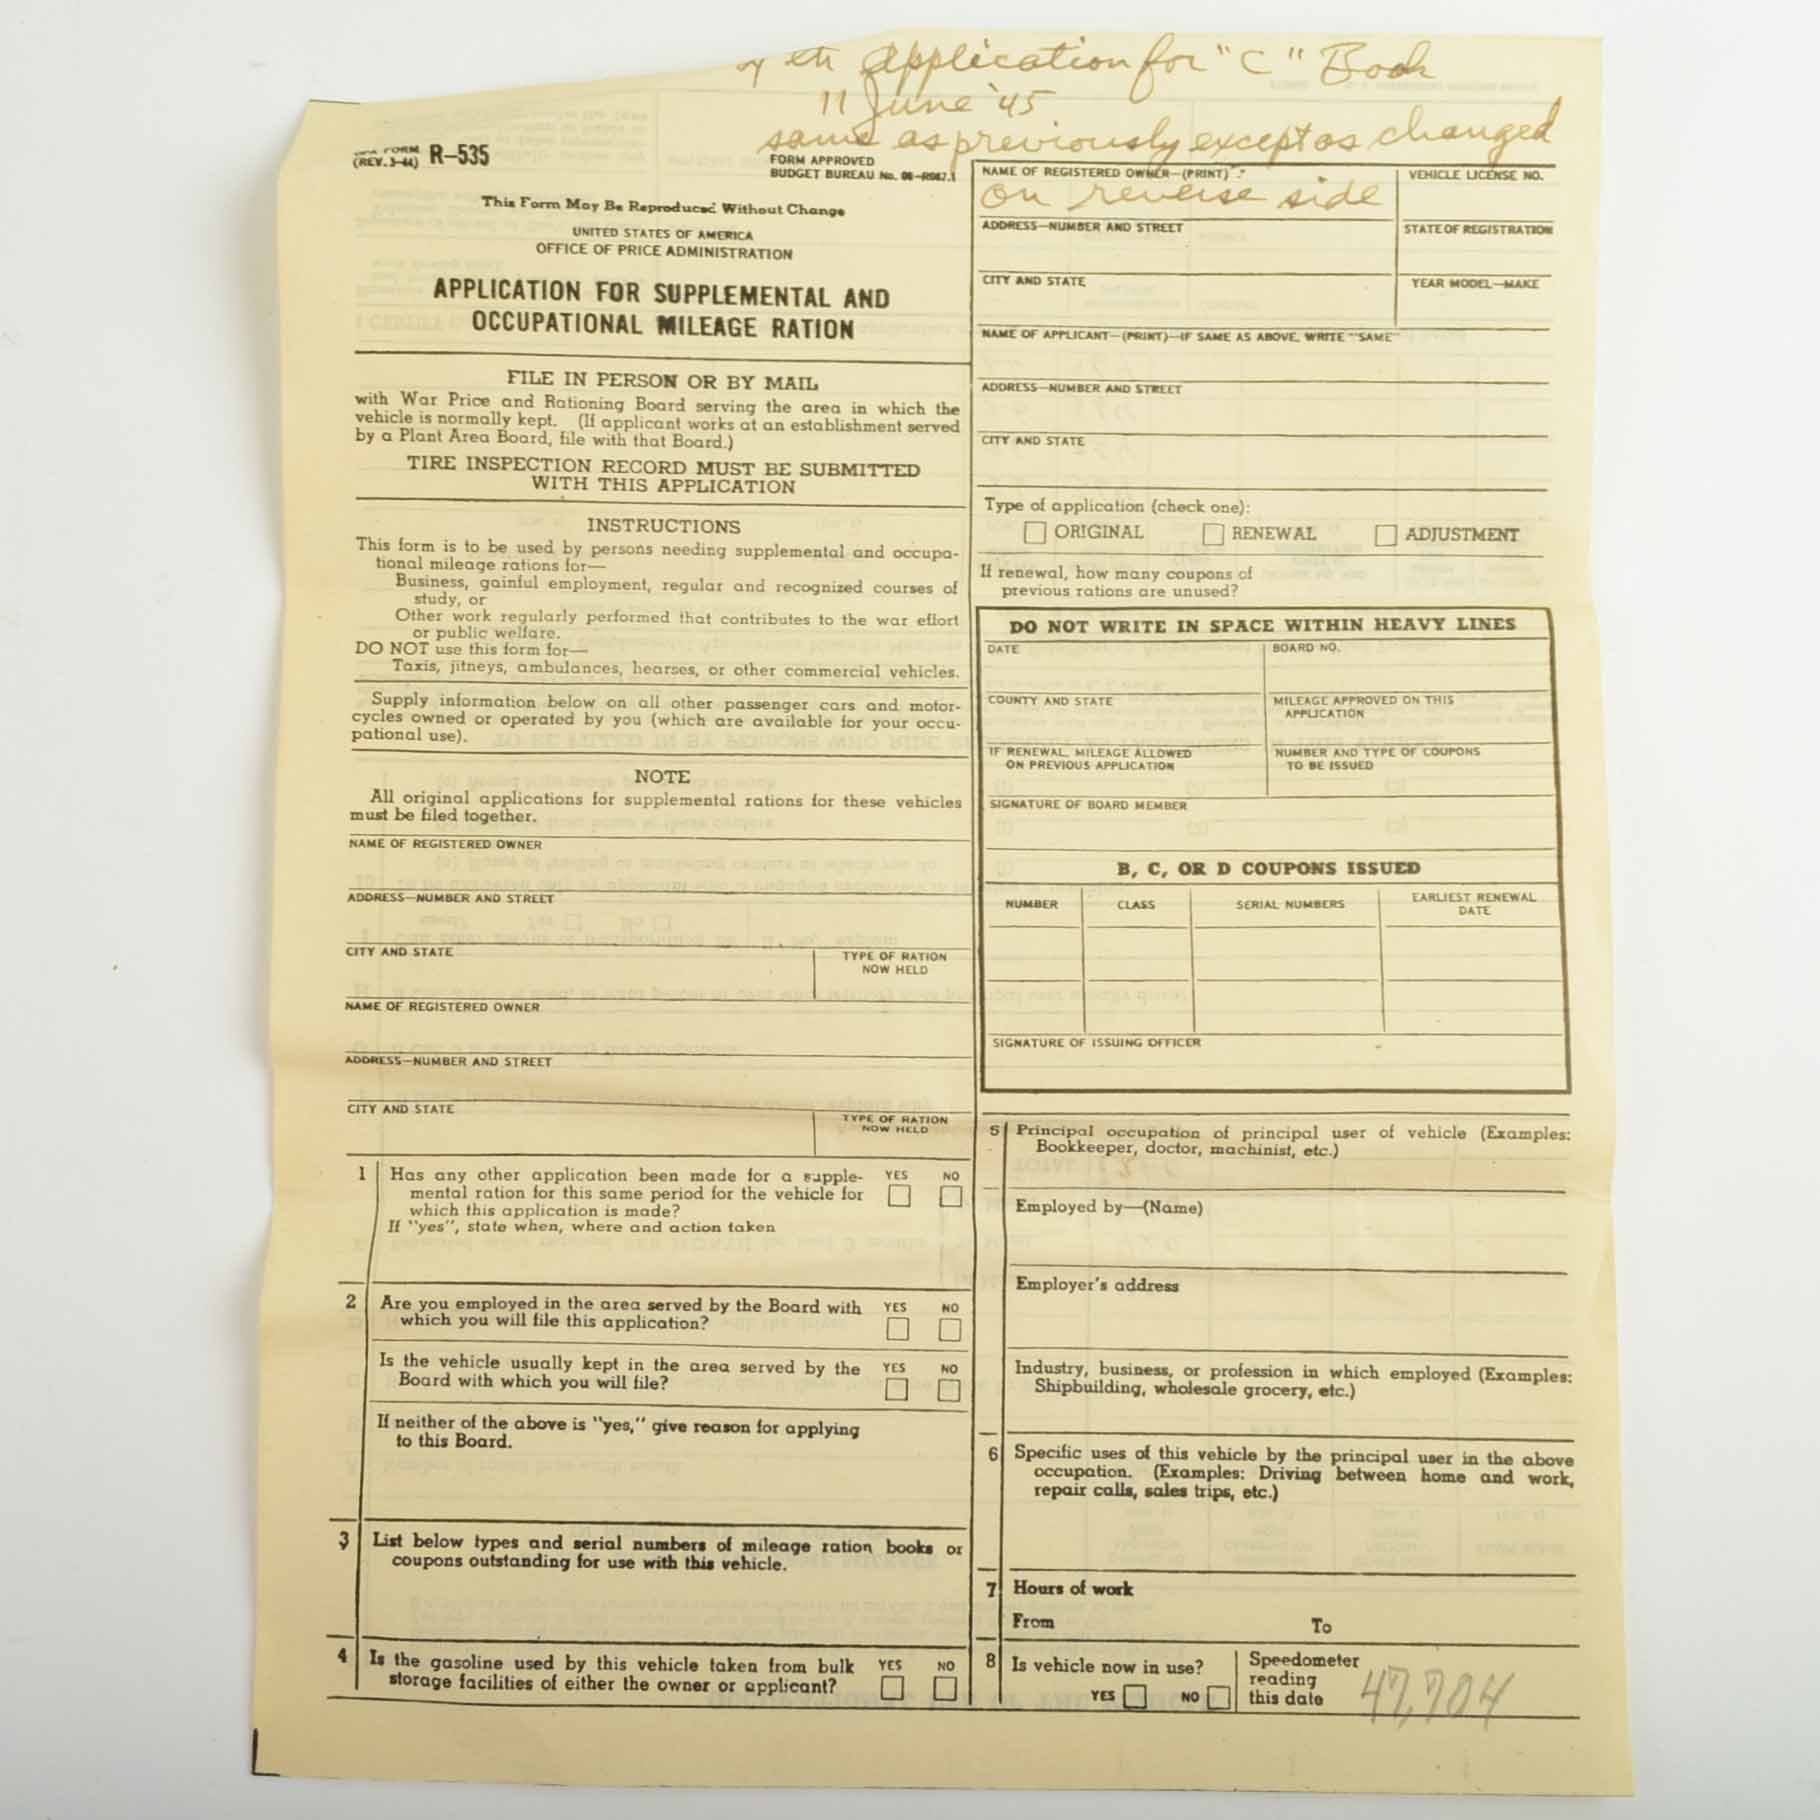 th Application for "C" Book
11 June '45
same as previously except as changed
on reverse side
FORM
(REV. 3-44) R-535
FORM APPROVED
BUDGET BUREAU No. 08-R087.1
This Form May Be Reproduced Without Change
UNITED STATES OF AMERICA
OFFICE OF PRICE ADMINISTRATION
APPLICATION FOR SUPPLEMENTAL AND
OCCUPATIONAL MILEAGE RATION
FILE IN PERSON OR BY MAIL
with War Price and Rationing Board serving the area in which the
vehicle is normally kept. (If applicant works at an establishment served
by a Plant Area Board, file with that Board.)
TIRE INSPECTION RECORD MUST BE SUBMITTED
WITH THIS APPLICATION
INSTRUCTIONS
This form is to be used by persons needing supplemental and occupa-
tional mileage rations for—
Business, gainful employment, regular and recognized courses of
study, or
Other work regularly performed that contributes to the war effort
or public welfare.
DO NOT use this form for—
Taxis, jitneys, ambulances, hearses, or other commercial vehicles.
Supply information below on all other passenger cars and motor-
cycles owned or operated by you (which are available for your occu-
pational use).
NOTE
All original applications for supplemental rations for these vehicles
must be filed together.
NAME OF REGISTERED OWNER
ADDRESS—NUMBER AND STREET
CITY AND STATE
TYPE OF RATION
NOW HELD
NAME OF REGISTERED OWNER
ADDRESS—NUMBER AND STREET
CITY AND STATE
TYPE OF RATION
NOW HELD
1 Has any other application been made for a supple-
mental ration for this same period for the vehicle for
which this application is made?
YES NO
If "yes", state when, where and action taken
2 Are you employed in the area served by the Board with
which you will file this application?
YES NO
Is the vehicle usually kept in the area served by the
Board with which you will file?
YES NO
If neither of the above is "yes," give reason for applying
to this Board.
3 List below types and serial numbers of mileage ration books or
coupons outstanding for use with this vehicle.
4 Is the gasoline used by this vehicle taken from bulk
storage facilities of either the owner or applicant?
YES NO
NAME OF REGISTERED OWNER—(PRINT)
VEHICLE LICENSE NO.
ADDRESS—NUMBER AND STREET
STATE OF REGISTRATION
CITY AND STATE
YEAR MODEL—MAKE
NAME OF APPLICANT—(PRINT)—IF SAME AS ABOVE, WRITE "SAME"
ADDRESS—NUMBER AND STREET
CITY AND STATE
Type of application (check one):
ORIGINAL RENEWAL ADJUSTMENT
If renewal, how many coupons of
previous rations are unused?
DO NOT WRITE IN SPACE WITHIN HEAVY LINES
DATE
BOARD NO.
COUNTY AND STATE
MILEAGE APPROVED ON THIS
APPLICATION
IF RENEWAL, MILEAGE ALLOWED
ON PREVIOUS APPLICATION
NUMBER AND TYPE OF COUPONS
TO BE ISSUED
SIGNATURE OF BOARD MEMBER
B, C, OR D COUPONS ISSUED
NUMBER CLASS SERIAL NUMBERS EARLIEST RENEWAL
DATE
SIGNATURE OF ISSUING OFFICER
5 Principal occupation of principal user of vehicle (Examples:
Bookkeeper, doctor, machinist, etc.)
Employed by—(Name)
Employer's address
Industry, business, or profession in which employed (Examples:
Shipbuilding, wholesale grocery, etc.)
6 Specific uses of this vehicle by the principal user in the above
occupation. (Examples: Driving between home and work,
repair calls, sales trips, etc.)
7 Hours of work
From To
8 Is vehicle now in use?
YES NO
Speedometer
reading
this date 47,704